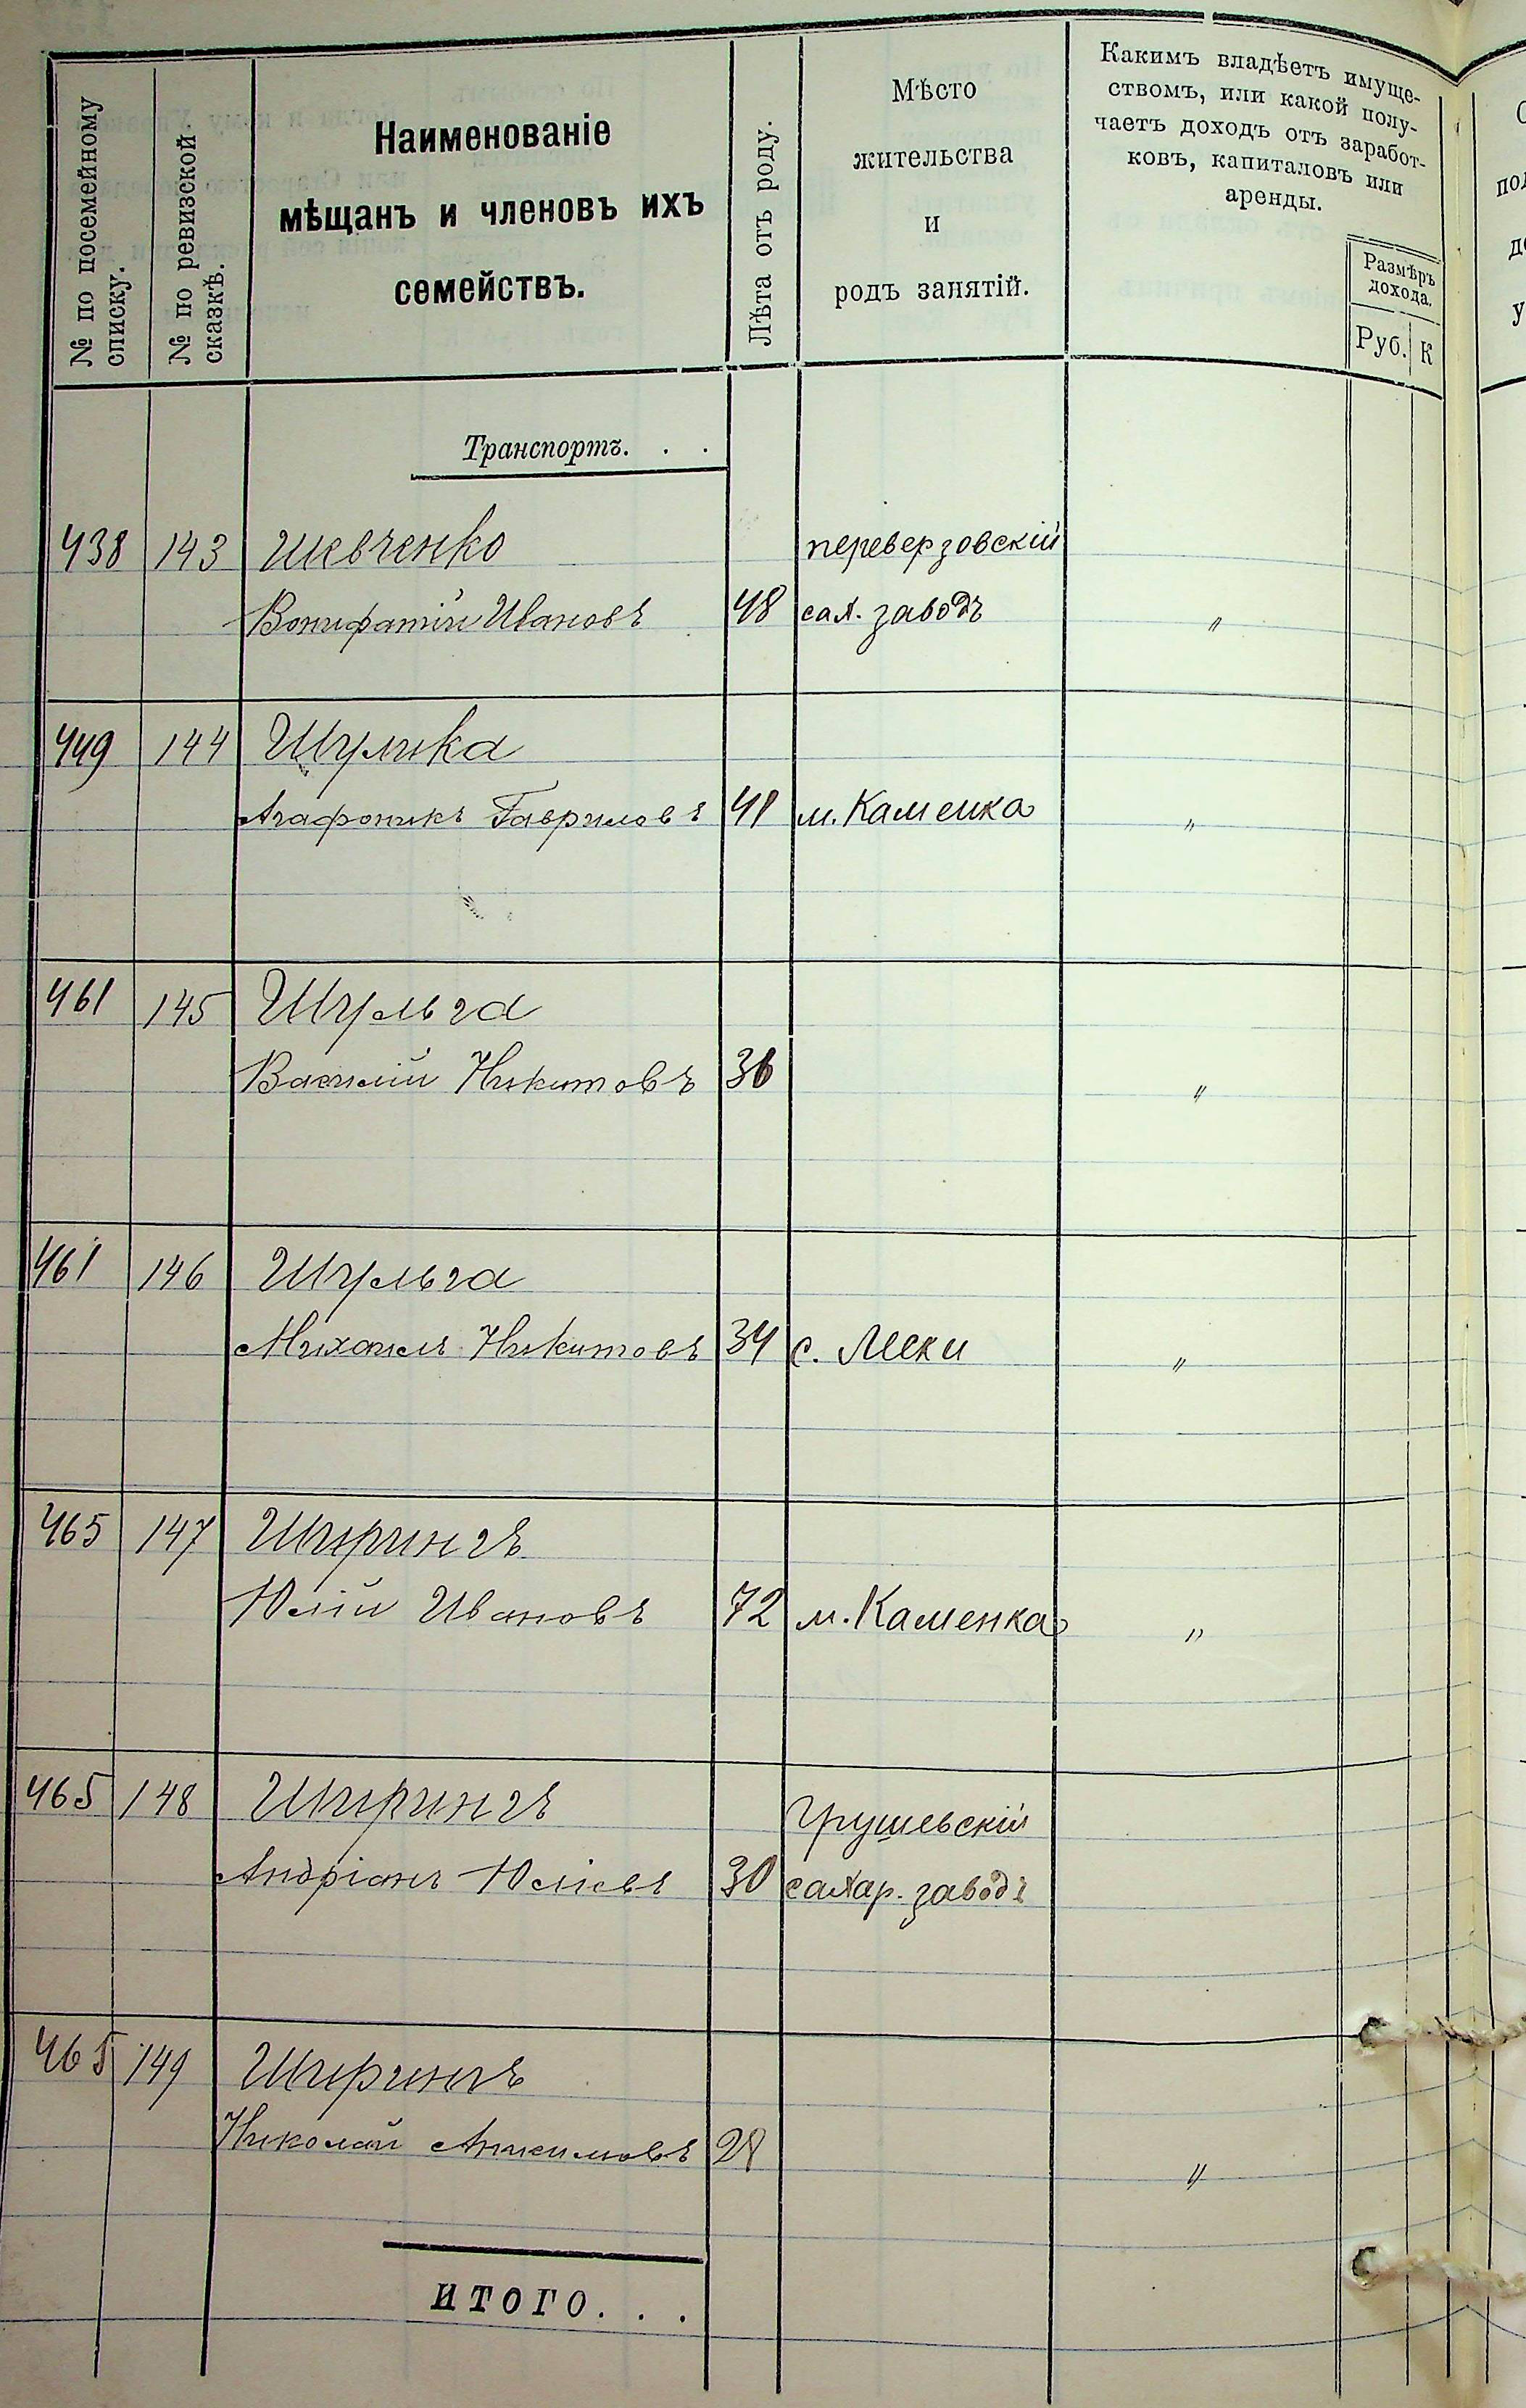 № по посемейному списку.
№ по ревизской сказкѣ.
Наименованіе
мѣщанъ и членовъ ихъ
семействъ.
Лѣта отъ роду.
Мѣсто
жительства
и
родъ занятій.
Какимъ владѣетъ имуще-
ствомъ, или какой полу-
чаетъ доходъ отъ заработ-
ковъ, капиталовъ или
аренды.
Размѣръ
дохода.
Руб. К
Транспортъ. . .
438 143 Шевченко переверзовскій
Вонифатій Ивановъ 48 сах. заводъ "
449 144 Шулика
Агафоникъ Гавриловъ 41 м. Каменка "
461 145 Шульга
Василій Никитовъ 36 "
461 146 Шульга
Михаилъ Никитовъ 34 с. Лески "
465 147 Ширингъ
Юлій Ивановъ 72 м. Каменка "
465 148 Ширингъ Грушевскій
Андріанъ Юліевъ 30 сахар. заводъ
465 149 Ширингъ
Николай 28 "
ИТОГО. . .